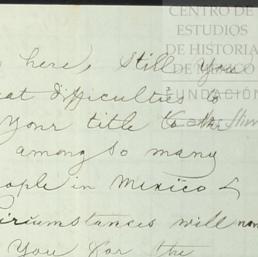 CENTRO DE
ESTUDIOS
DE HISTORIA
DE MÉXICO
FUNDACIÓN
here, Still You
at difficulties to
Your title to the
among so many
ople in Mexico &
ircumstances will
You for the